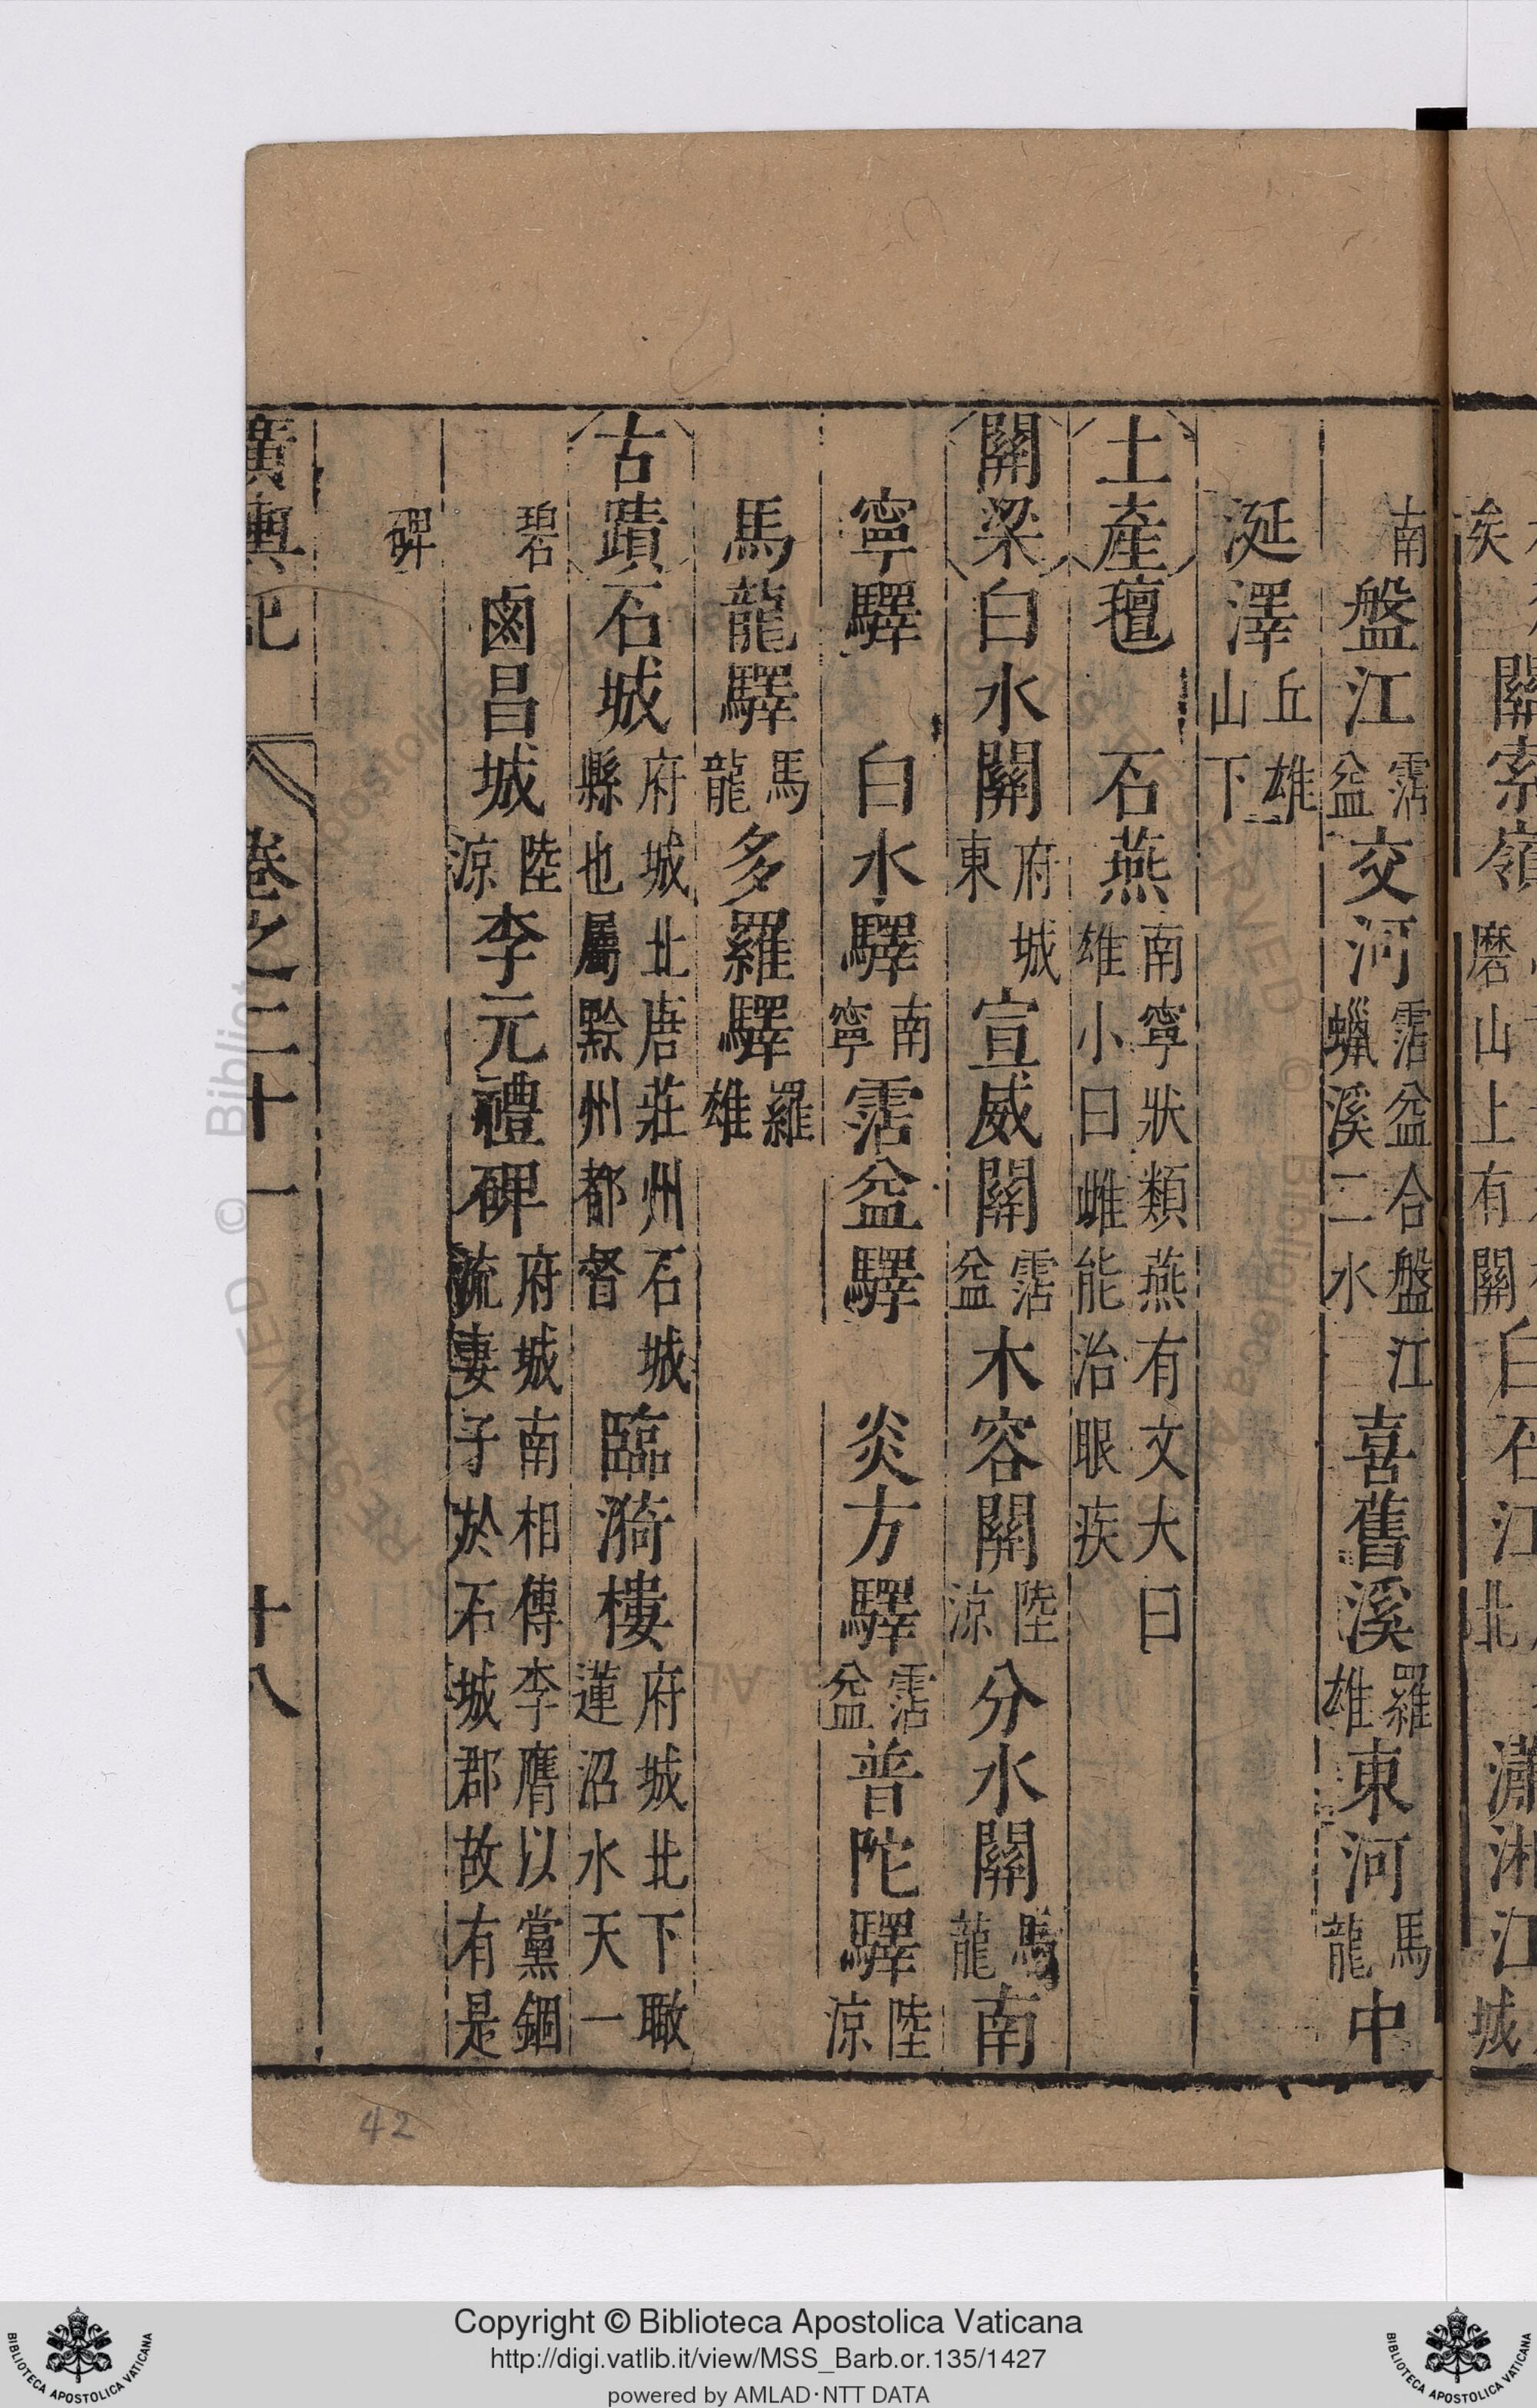 關索嶺
白石江
瀟湘江
南盤江霑益交河霑益合盤江蠟溪二水喜舊溪羅雄東河馬龍中
涎澤丘雄山下
土產氊 石燕南寧狀類燕有文大曰雄小曰雌能治眼疾
關梁白水關府城東宣威關霑益木容關陸涼分水關馬龍南
寧驛 白水驛南寧霑益驛 炎方驛霑益普陀驛陸涼
馬龍驛馬龍多羅驛羅雄
古蹟石城府城北唐莊州石城縣也屬黔州都督臨漪樓府城北下瞰蓮沼水天一
碧鹵昌城陸涼李元禮碑府城南相傳李膺以黨錮流妻子於石城郡故有是
碑
廣輿記 卷之二十一 十八
42
Copyright © Biblioteca Apostolica Vaticana
http://digi.vatlib.it/view/MSS_Barb.or.135/1427
powered by AMLAD·NTT DATA
BIBLIOTECA APOSTOLICA VATICANA
BIBLIOTECA APOSTOLICA VATICANA